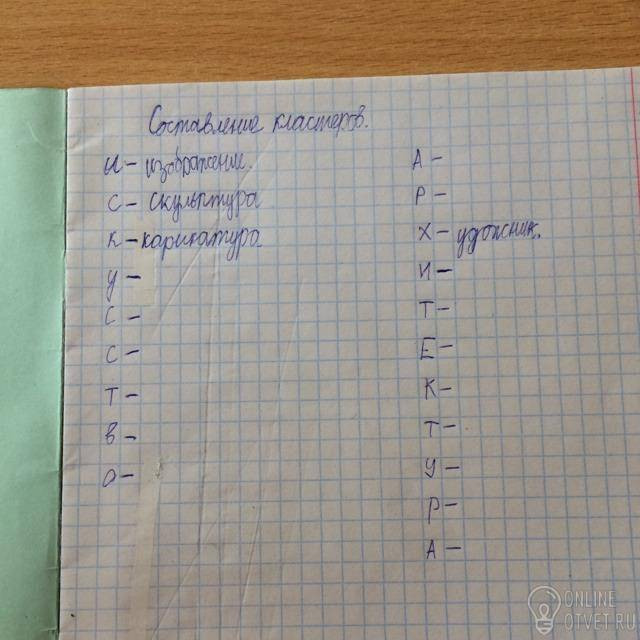 Составление кластеров.
И - изображение
С - скульптура
К - карикатура
У -
С -
С -
Т -
В -
О -
А -
Р -
Х - удожник.
И -
Т -
Е -
К -
Т -
У -
Р -
А -
ONLINE
OTVET.RU